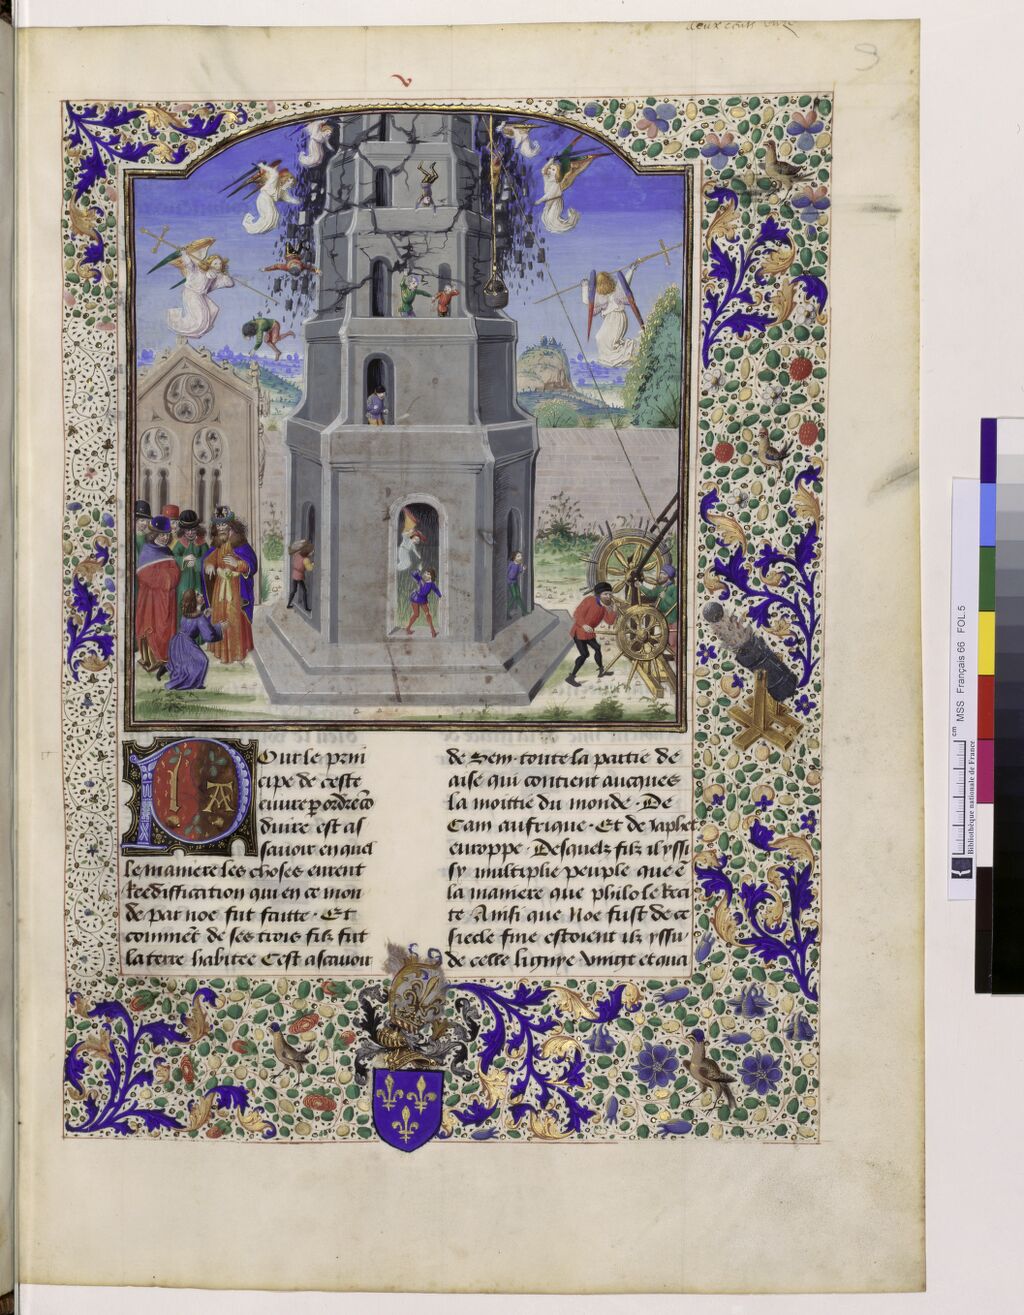 deux cens
v
Our le prin
cipe de ceste
euure p ordre cõ
duire est as
sauoir en quel
le maniere les choses eurent
Reediffication qui en ce mon
de par noe fut faitte. Et
commẽt de ses trois filz fut
la terre habitee Cest ascauoir
de Sem. toute la partie de
aise qui contient aucques
la moittie du monde. De
Cam auffrique. Et de Japhet
europpe. Desquelz filz il yssi
sy multiplie peuple que cẽ
la maniere que philo le Reci
te Ainsi que Noe fust de ce
siecle fine estoient ilz yssu
de celle lignye. vingt et qua
MSS Français 66 FOL. 5
cm
Bibliothèque nationale de France